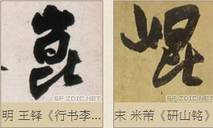 崑 崐
SF.ZDIC.NET SF.ZDIC.NET
明 王铎《行书李... 宋 米芾《研山铭》